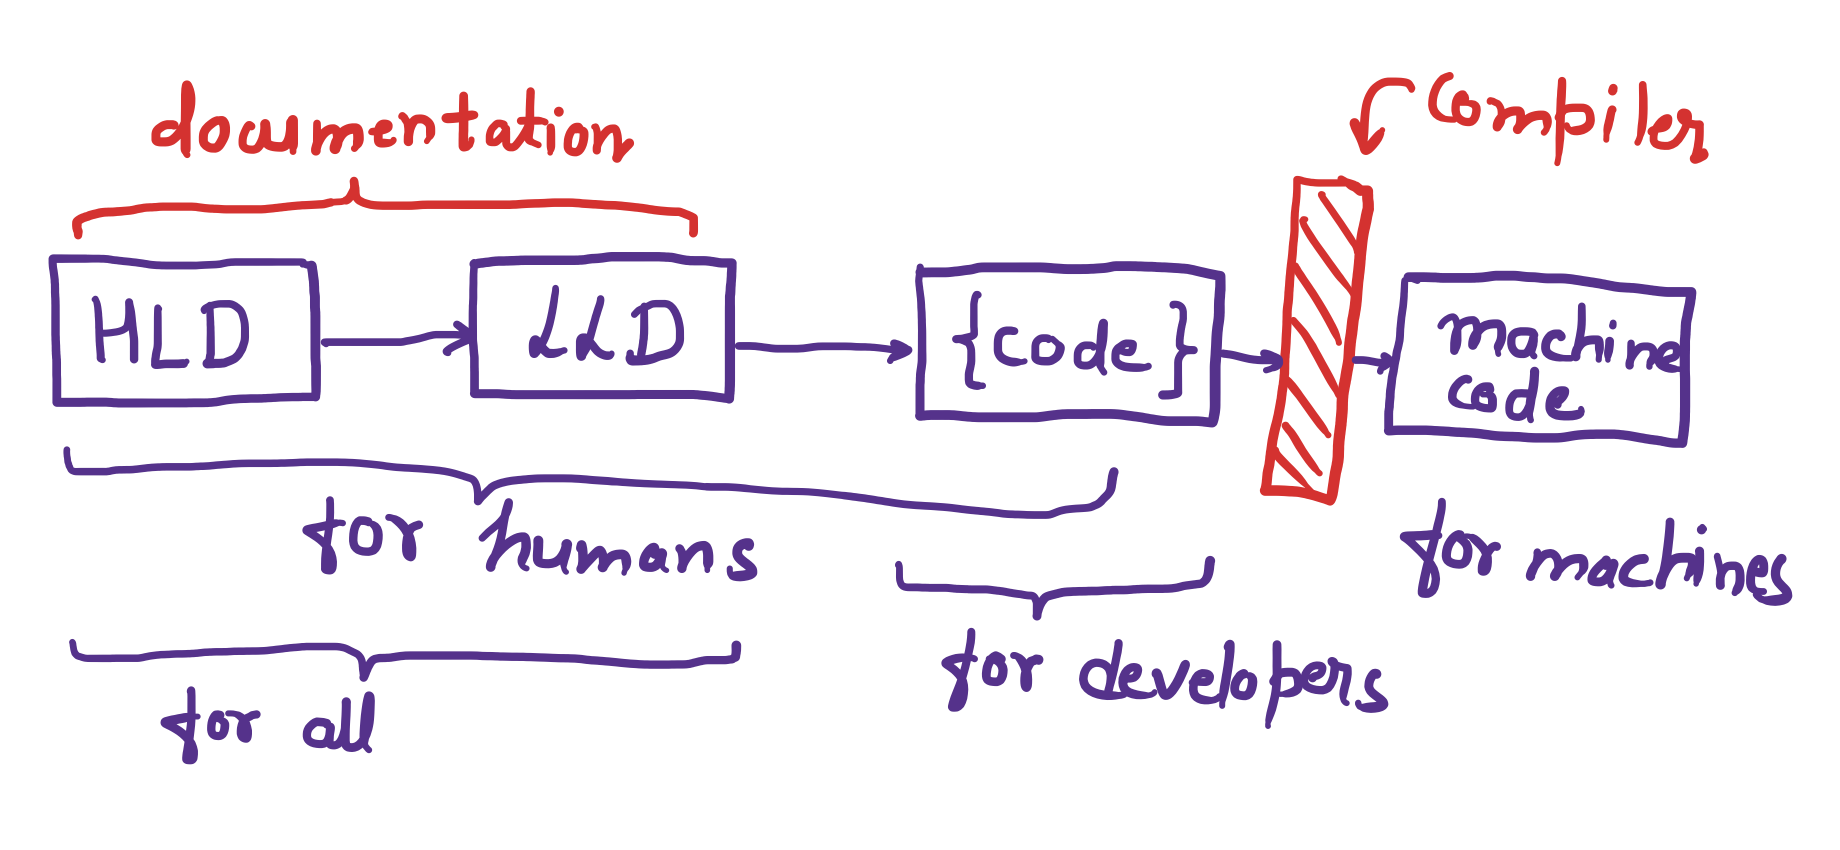 documentation
compiler
HLD
LLD
{code}
machine
code
for humans
for machines
for developers
for all